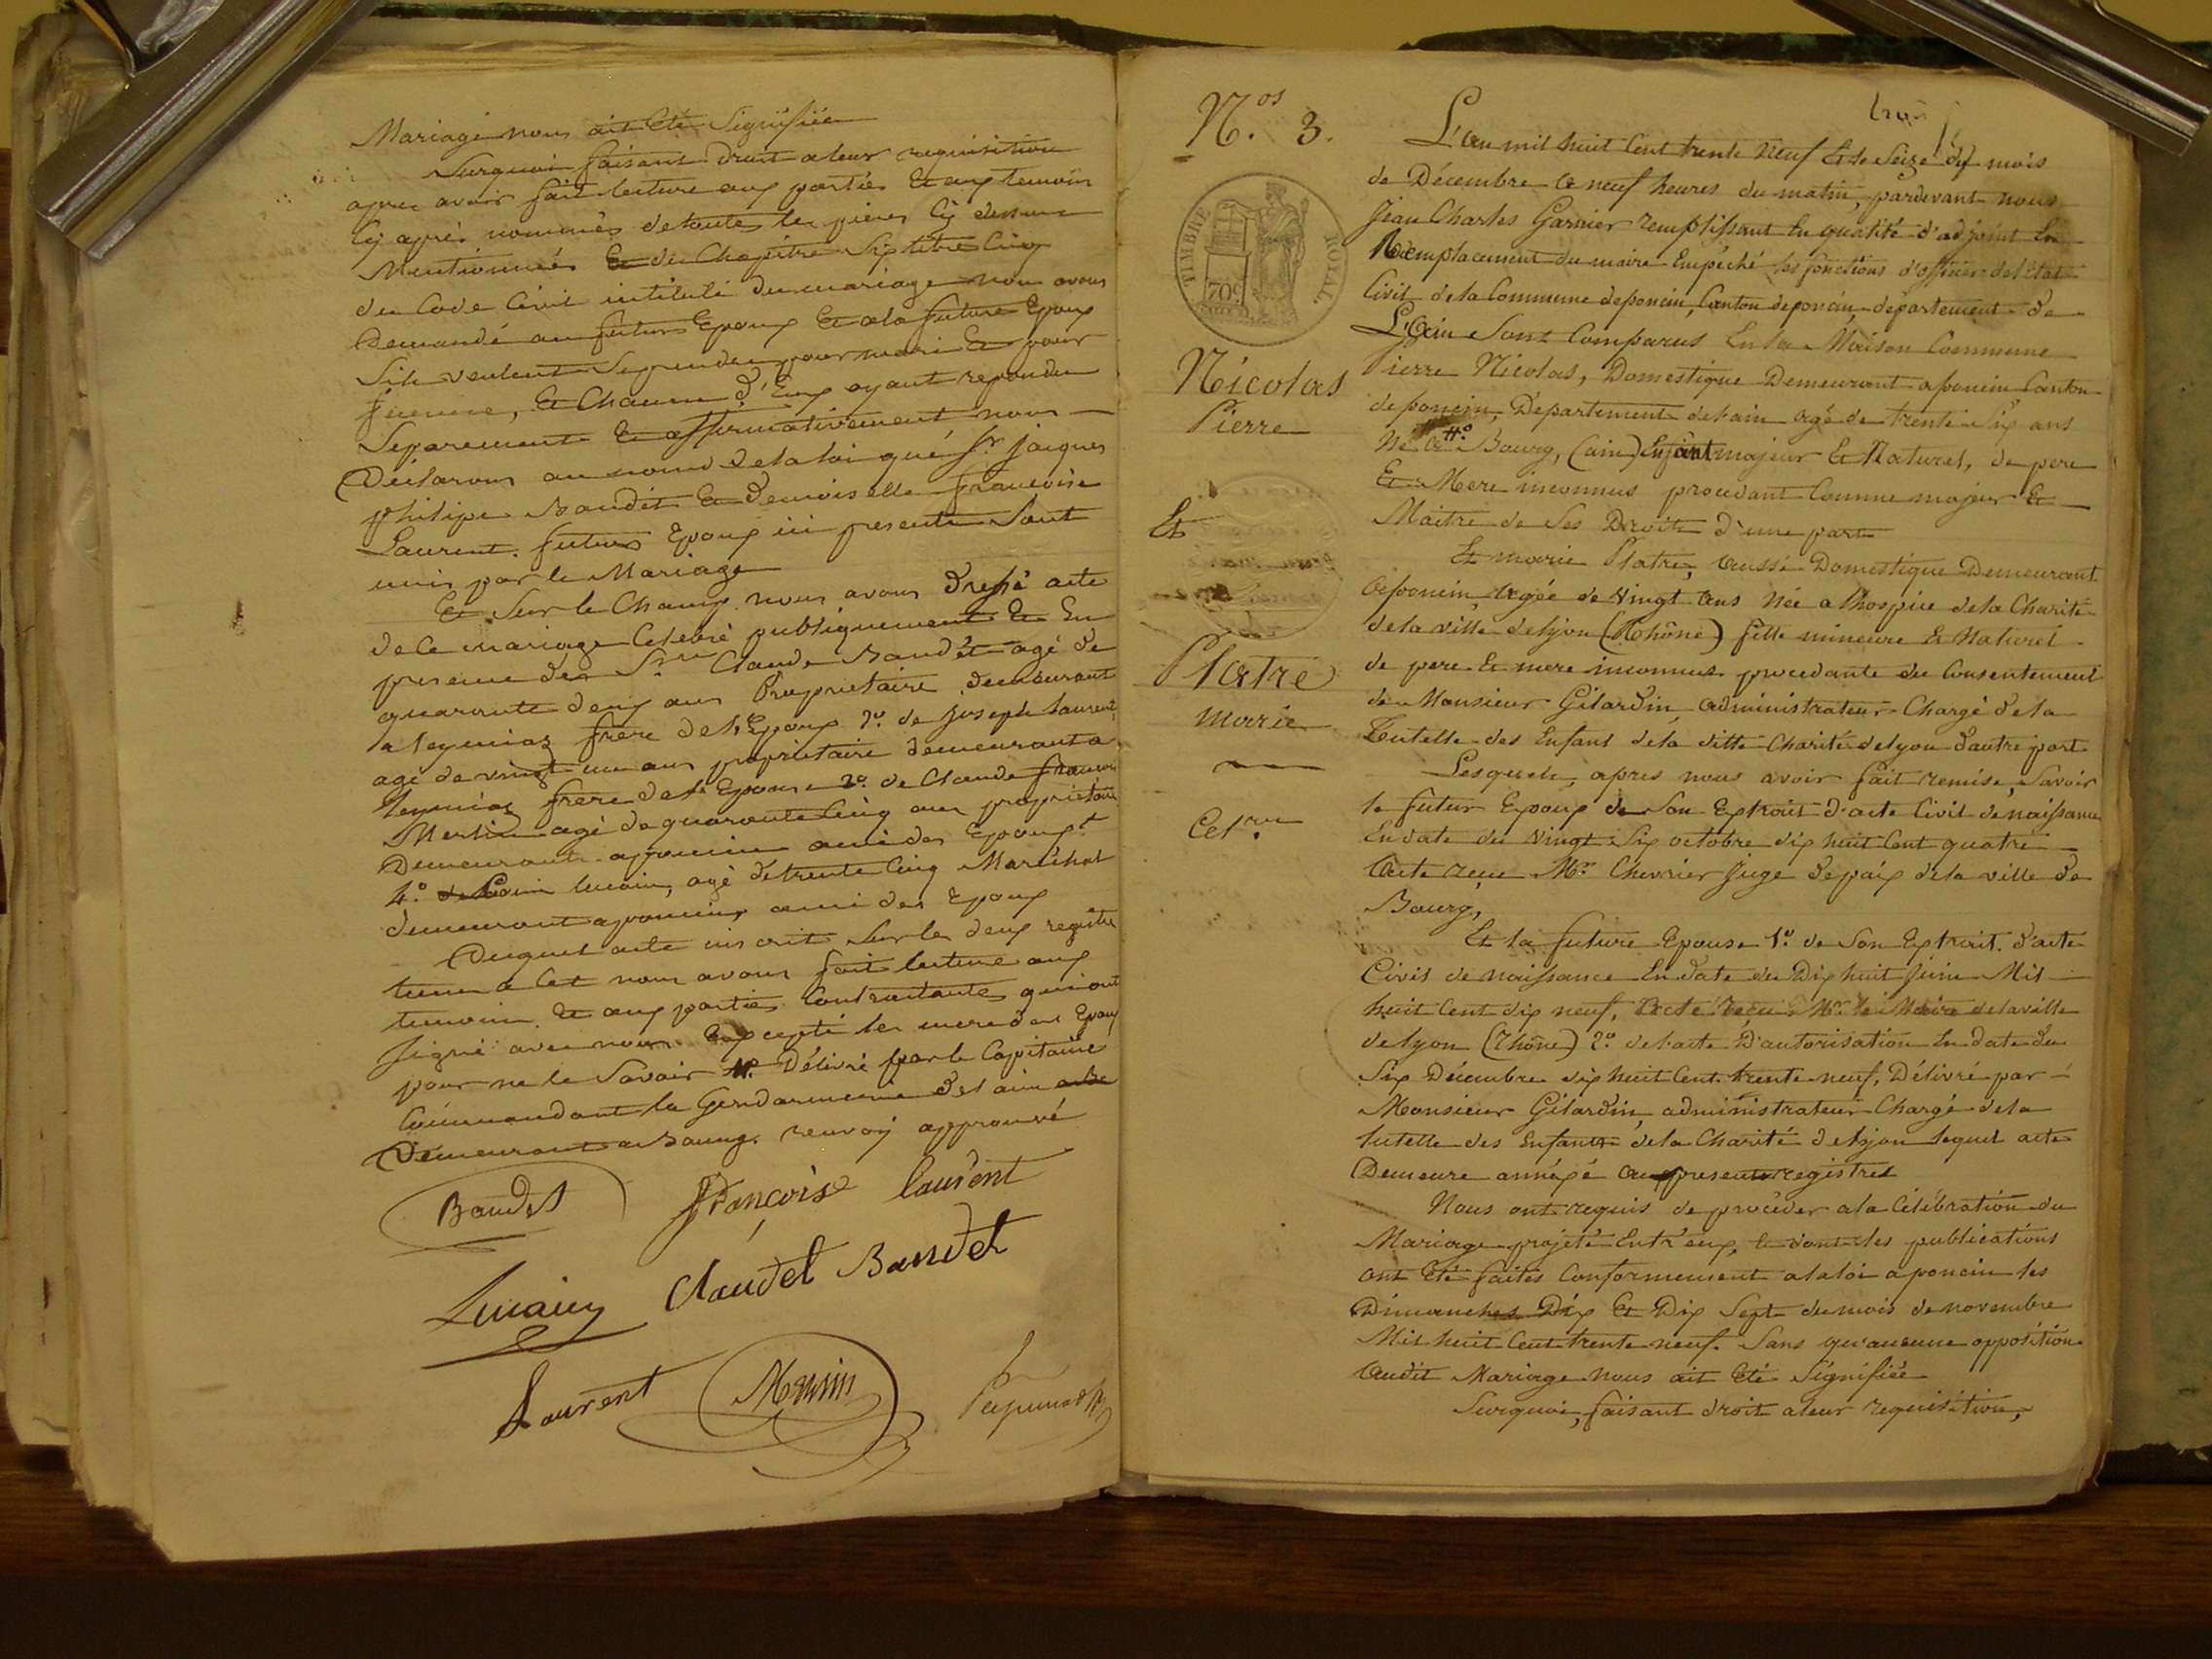 Mariage nous ait été Signifiée
Surquoi faisant droit a leur requisition
apres avoir fait lecture aux parties Et aux temoins
Cÿ après nommés de toutes les pièces Cÿ dessus
Mentionnées Et du Chapitre Six titre Cinq
du Code Civil intitulé du mariage nous avons
Demandé au futur Epoux Et a la future Epoux
S'ils veulent Se prendre pour mari Et pour
femme, Et Chacun d'Eux ayant repondu
Separement Et affirmativement nous
Déclarons au nom de la loi que Sr. jacques
philipe Baudet Et Demoiselle francoise
Laurent futurs Epoux ici presents Sont
unis par le Mariage
Et Sur le Champ nous avons Dressé acte
de Ce mariage Celebré publiquement Et En
presence des Claude Baudet agé de
quarante deux ans Proprietaire demeurant
a leymiaz frère de l'Epoux 2º de Joseph laurent
agé de vingt un ans propriétaire demeurant a
leymiaz frere de l'Epouse 3º. de Claude francois
Merlin agé de quarante Cinq ans propriétaire
Demeurant a poncin ami des Epoux
4º. Lucain, agé de trente Cinq Maréchal
demeurant a poncin ami des Epoux
Duquel acte inscrit Sur les deux registres
tenus a Cet nous avons fait lecture aux
temoins Et aux parties Contractantes qui ont
Signé avec nous Excepté les meres des Epoux
pour ne le Savoir #. Délivré par le Capitaine
Commandant la Gendarmerie de l'ain
Demeurant a Bourg. renvoi approuvé
Baudet françoise laurent
Lucain Claudet Baudet
Laurent Merlin
N.os 3.
TIMBRE ROYAL
70c
Nicolas
Pierre
Et
Platre
marie
L'an mil huit Cent trente neuf Et le Seize du mois
de Décembre a neuf heures du matin, pardevant nous
Jean Charles Garnier remplissant En qualité d'adjoint En
Remplacement du maire Empéché les fonctions d'officier de l'état
Civil de la Commune de poncin, Canton de poncin département de
L'Ain Sont Comparus En la Maison Commune
Pierre Nicolas, Domestique Demeurant a poncin Canton
de poncin, Département de l'ain agé de trente Six ans
Né a #º Bourg, (ain) Enfant majeur Et Naturel, de pere
Et Mere inconnus procedant Comme majeur Et
Maitre de Ses Droits d'une part
Et marie Platre, aussi Domestique Demeurant
a poncin, agée de Vingt ans Née a l'hospice de la Charité
de la ville de lyon (Rhône) fille mineure Et Naturel
de pere Et mere inconnus procedante du Consentement
de Monsieur Gilardin, administrateur Chargé de la
Tutelle des Enfans de la ditte Charité de lyon d'autre part
Lesquels, apres nous avoir fait remise, Savoir
le futur Epoux de Son Extrait d'acte Civil de naissance
En date du Vingt Six octobre dix huit Cent quatre
acte recu Mr. Chevrier Juge de paix de la ville de
Bourg,
Et la future Epouse 1º de Son Extrait d'acte
Civil de naissance En date du Dix huit Juin Mil
huit Cent dix neuf, acte recu Mr. le Maire de la ville
de lyon (Rhône) 2º de l'acte D'autorisation En date du
Six Décembre dix huit Cent trente neuf, Délivré par
Monsieur Gilardin, administrateur Chargé de la
tutelle des Enfants de la Charité de lyon lequel acte
Demeure annéxé au present registres
Nous ont requis de procéder a la Célébration du
Mariage projeté Entr'eux, Et dont les publications
ont été faites Conformement a la loi a poncin les
Dimanches Dix Et Dix Sept du mois de novembre
Mil huit Cent trente neuf. Sans qu'aucune opposition
audit Mariage nous ait été Signifiée
Surquoi, faisant droit a leur requisition,